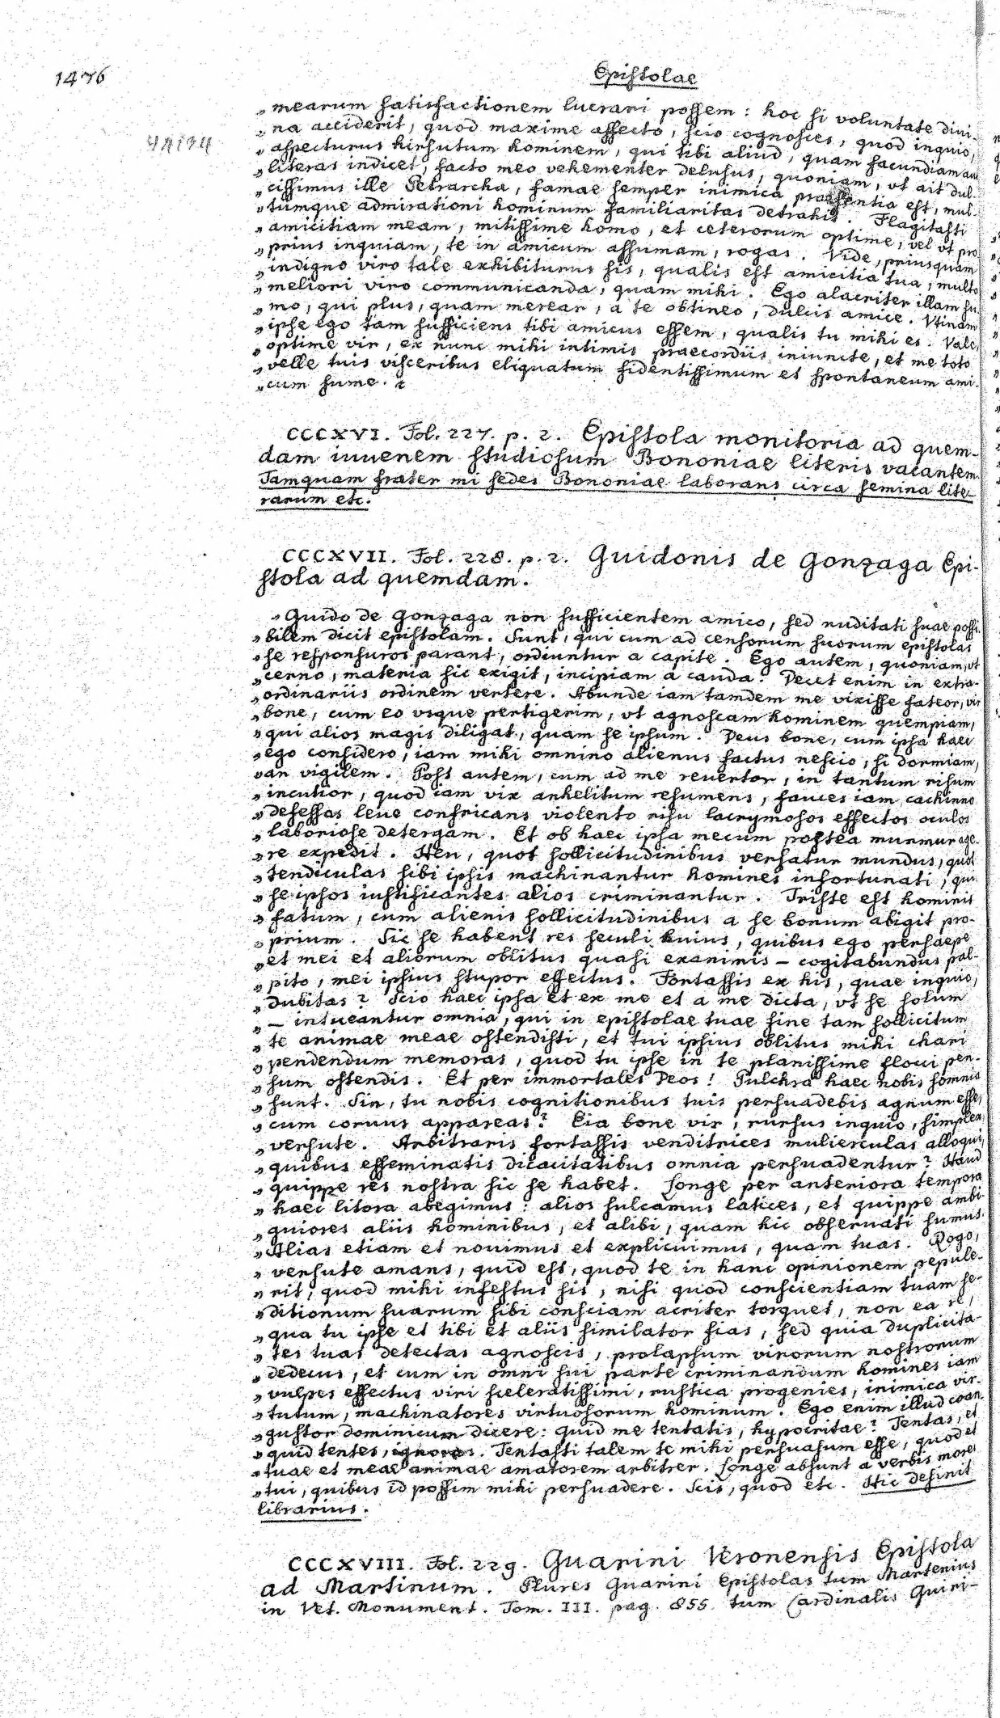 1476
Epistolae
„mearum satisfactionem lucrari possem : hoc si voluntate divi-
„na acciderit, quod maxime affecto, scio cognosces, quod inquio,
„aspecturus hirsutum hominem, qui tibi aliud, quam facundiam aut
„literas indicet, facto meo vehementer delusus, quoniam, ut ait dul-
„cissimus ille Petrarcha, famae semper inimica praesentia est, mul-
„tumque admirationi hominum familiaritas detrahit. Flagitasti
„amicitiam meam, mitissime homo, et ceterorum optime, vel ut pro-
„prius inquiam, te in amicum assumam, rogas. Vide, priusquam
„indigno viro tale exhibiturus sis, qualis est amicitia tua, multo
„meliori viro communicanda, quam mihi. Ego alacriter illam su-
„mo, qui plus, quam merear, a te obtineo, dulcis amice. Vtinam
„ipse ego tam sufficiens tibi amicus essem, qualis tu mihi es. Vale,
„optime vir, ex nunc mihi intimis praecordiis iniuncte, et me toto
„velle tuis visceribus eliquatum fidentissimum et spontaneum ami-
„cum sume.
CCCXVI. Fol. 227. p. 2. Epistola monitoria ad quem-
dam iuvenem studiosum Bononiae literis vacantem.
Tamquam frater mi sedes Bononiae laborans circa semina lite-
rarum etc.
CCCXVII. Fol. 228. p. 2. Guidonis de Gonzaga Epi-
stola ad quemdam.
„Guido de Gonzaga non sufficientem amico, sed nuditati suae possi-
„bilem dicit epistolam. Sunt, qui cum ad censorum suorum epistolas
„se responsuros parant, ordiuntur a capite. Ego autem, quoniam, ut
„cerno, materia sic exigit, incipiam a cauda. Decet enim in extra-
„ordinariis ordinem vertere. Abunde iam tamdem me vixisse fateor, vir
„bone, cum eo usque pertigerim, ut agnoscam hominem quempiam,
„qui alios magis diligat, quam se ipsum. Deus bone, cum ipsa haec
„ego considero, iam mihi omnino alienus factus nescio, si dormiam,
„an vigilem. Post autem, cum ad me revertor, in tantum risum
„incutior, quod iam vix anhelitum resumens, fauces iam cachinno
„defessas leve confricans violento risu lacrymosos effectos oculos
„laboriose detergam. Et ob haec ipsa mecum postea murmurage-
„re expedit. Heu, quot sollicitudinibus versatur mundus, quot
„tendiculas sibi ipsis machinantur homines infortunati, qui
„se ipsos iustificantes alios criminantur. Triste est hominis
„fatum, cum alienis sollicitudinibus a se bonum abigit pro-
„prium. Sic se habent res seculi huius, quibus ego persaepe
„et mei et aliorum oblitus quasi exanimis — cogitabundus pal-
„pito, mei ipsius stupor effectus. Fortassis ex his, quae inquio,
„dubitas? Scio haec ipsa et ex me et a me dicta, ut se solum
„— intueantur omnia, qui in epistolae tuae sine tam sollicitum
„te animae meae ostendisti, et tui ipsius oblitus mihi chari
„pendendum memoras, quod tu ipse in te planissime floci pen-
„sum ostendis. Et per immortales Deos! Pulchra haec nobis somnia
„sunt. Sin, tu nobis cognitionibus tuis persuadebis agnum esse,
„cum corvus appareas? Eia bone vir, rursus inquio, simplex
„versute. Arbitraris fortassis venditrices mulierculas alloqui,
„quibus effeminatis dicacitatibus omnia persuadentur? Haud
„quippe res nostra sic se habet. Longe per anteriora tempora
„haec litora abegimus : alios sulcamus latices, et quippe ambi-
„guiores aliis hominibus, et alibi, quam hic observati sumus.
„Alias etiam et novimus et explicuimus, quam tuas. Rogo,
„versute amans, quid est, quod te in hanc opinionem pepule-
„rit, quod mihi infestus sis, nisi quod conscientiam tuam se-
„ditionum suarum sibi consciam acriter torquet, non ea re,
„qua tu ipse et tibi et aliis similator sias, sed quia duplicita-
„tes tuas detectas agnoscis, prolapsum virorum nostrorum
„dedecus, et cum in omni sui parte criminandum homines iam
„vulpes effectus viri sceleratissimi, rustica progenies, inimica vir-
„tutum, machinatores virtuosorum hominum. Ego enim illud coan-
„gustor dominicum dicere : quid me tentatis, hypocritae? Tentas, et
„quid tentes, ignoras. Tentasti talem te mihi persuasum esse, quod et
„tuae et meae animae amatorem arbitrer. Longe absunt a verbis mores
„tui, quibus id possim mihi persuadere. Scis, quod etc. Hic definit
librarius.
CCCXVIII. Fol. 229. Guarini Veronensis Epistola
ad Martinum. Plures Guarini Epistolas tum Martenius
in Vet. Monument. Tom. III. pag. 855. tum Cardinalis Quiri-